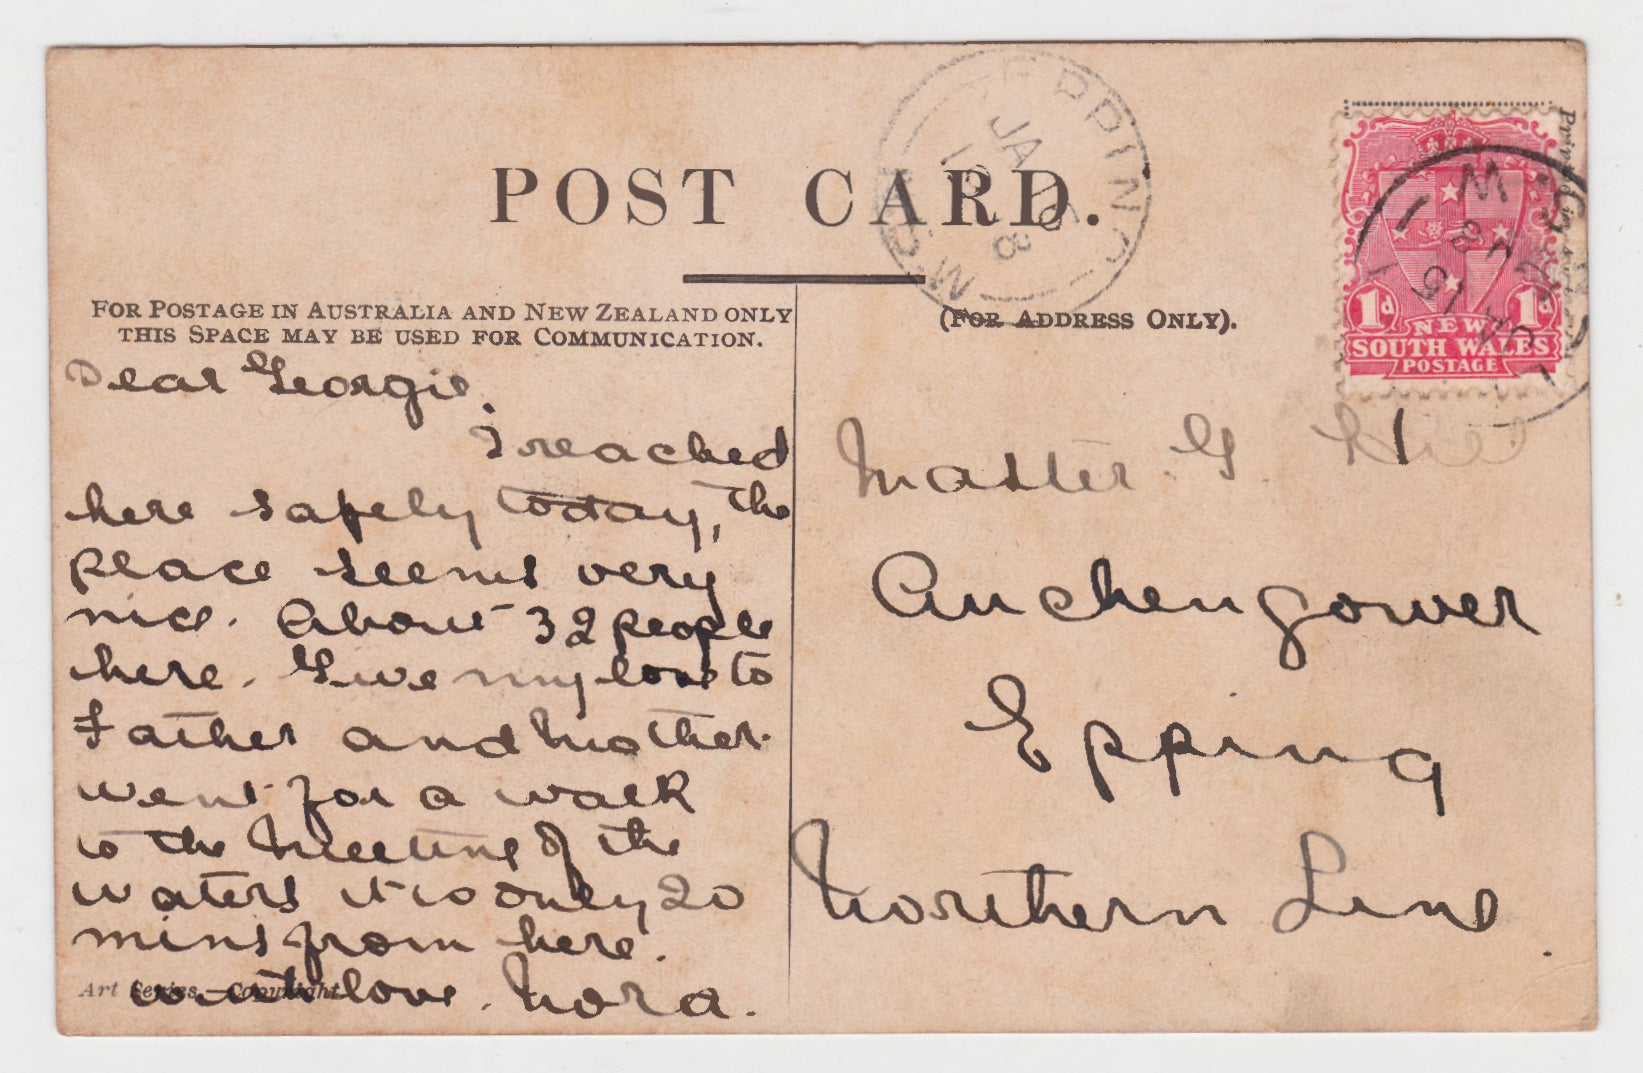 POST CARD.
FOR POSTAGE IN AUSTRALIA AND NEW ZEALAND ONLY
THIS SPACE MAY BE USED FOR COMMUNICATION.
(FOR ADDRESS ONLY).
Dear Georgie.
I reached
here safely today, the
place seems very
nice. About 32 people
here. Give my love to
Father and Mother.
went for a walk
to the Meeting of the
waters it is only 20
mins from here.
with love. Nora.
Art Series. Copyright
Master. G. Hill
Auchengower
Epping
Northern Line.
EPPING
JA
N.S.W
1d 1d
NEW
SOUTH WALES
POSTAGE